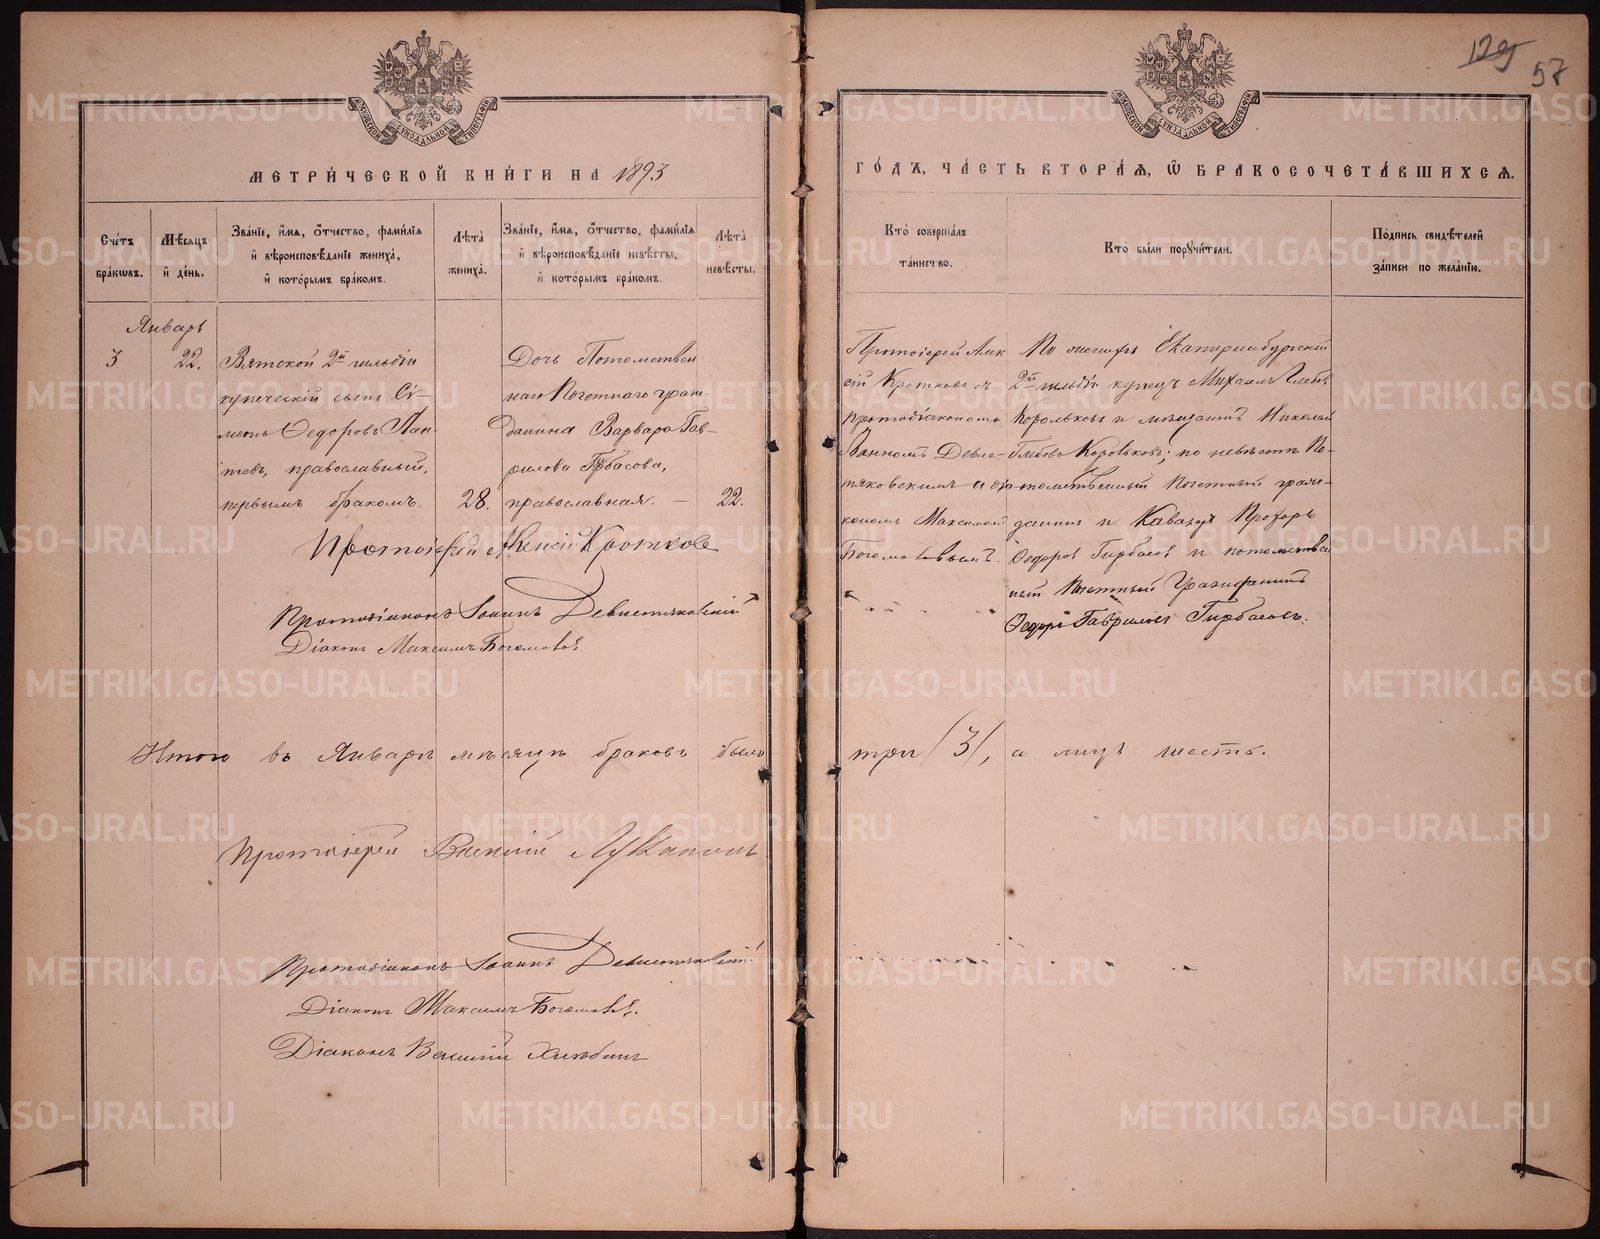 129
57
МОСКОВСКОЙ СѴНОДАЛЬНОЙ ТИПОГРАФІИ
МОСКОВСКОЙ СѴНОДАЛЬНОЙ ТИПОГРАФІИ
МЕТРИ́ЧЕСКОЙ КНИ́ГИ НА 1893
ГО́ДЪ, ЧА́СТЬ ВТОРА́Я, Ѡ БРАКОСОЧЕТА́ВШИХСЯ.
Сче́тъ бра́кѡвъ.
Мѣ́сяцъ и де́нь.
Зва́нїе, и́мя, о́тчество, фами́лїя и҆ вѣроисповѣ́данїе жениха̀, и҆ кото́рымъ бра́комъ.
Лѣта̀ жениха̀.
Зва́нїе, и́мя, о́тчество, фами́лїя и҆ вѣроисповѣ́данїе невѣ́сты, и҆ кото́рымъ бра́комъ.
Лѣта̀ невѣ́сты.
Кто̀ соверша́лъ та́инство.
Кто̀ бы́ли поручи́тели.
По́дпись свидѣ́телей за́писи по жела́нїю.
Январь
3
22.
Вятской 2й гильдіи
купеческій сынъ Сѵ-
меонъ Ѳедоровъ Лап-
тевъ, православный,
первымъ бракомъ.
28.
Дочь Потомствен
наго Почетнаго граж-
данина Варвара Гав-
рилова Гирбасова,
православная.
22.
Протоіерей Алек
сій Кротковъ съ
протодіакономъ
Іоанномъ Девле-
тяковскимъ и діа-
кономъ Максимомъ
Богомоловымъ.
По женихѣ Екатеринбургскій
2й гильдіи купецъ Михаилъ Глебов
Корольковъ и мещанинъ Николай
Глебовъ Корольковъ; по невѣстѣ По-
томственный Почетный граж-
данинъ и Кавалеръ Прохоръ
Ѳедоровъ Гирбасовъ и потомствен
ный Почетный Гражданинъ
Ѳедоръ Гавриловъ Гирбасовъ.
Протоіерей Алексій Кротковъ
Протодіаконъ Іоаннъ Девлетяковскій
Діаконъ Максимъ Богомоловъ.
Итого въ Январѣ мѣсяцѣ браковъ было три (3), а лицъ шесть.
Протоіерей Василій Лукановъ
Протодіаконъ Іоаннъ Девлетяковскій
Діаконъ Максимъ Богомоловъ.
Діаконъ Василій Хлѣбинъ
METRIKI.GASO-URAL.RU